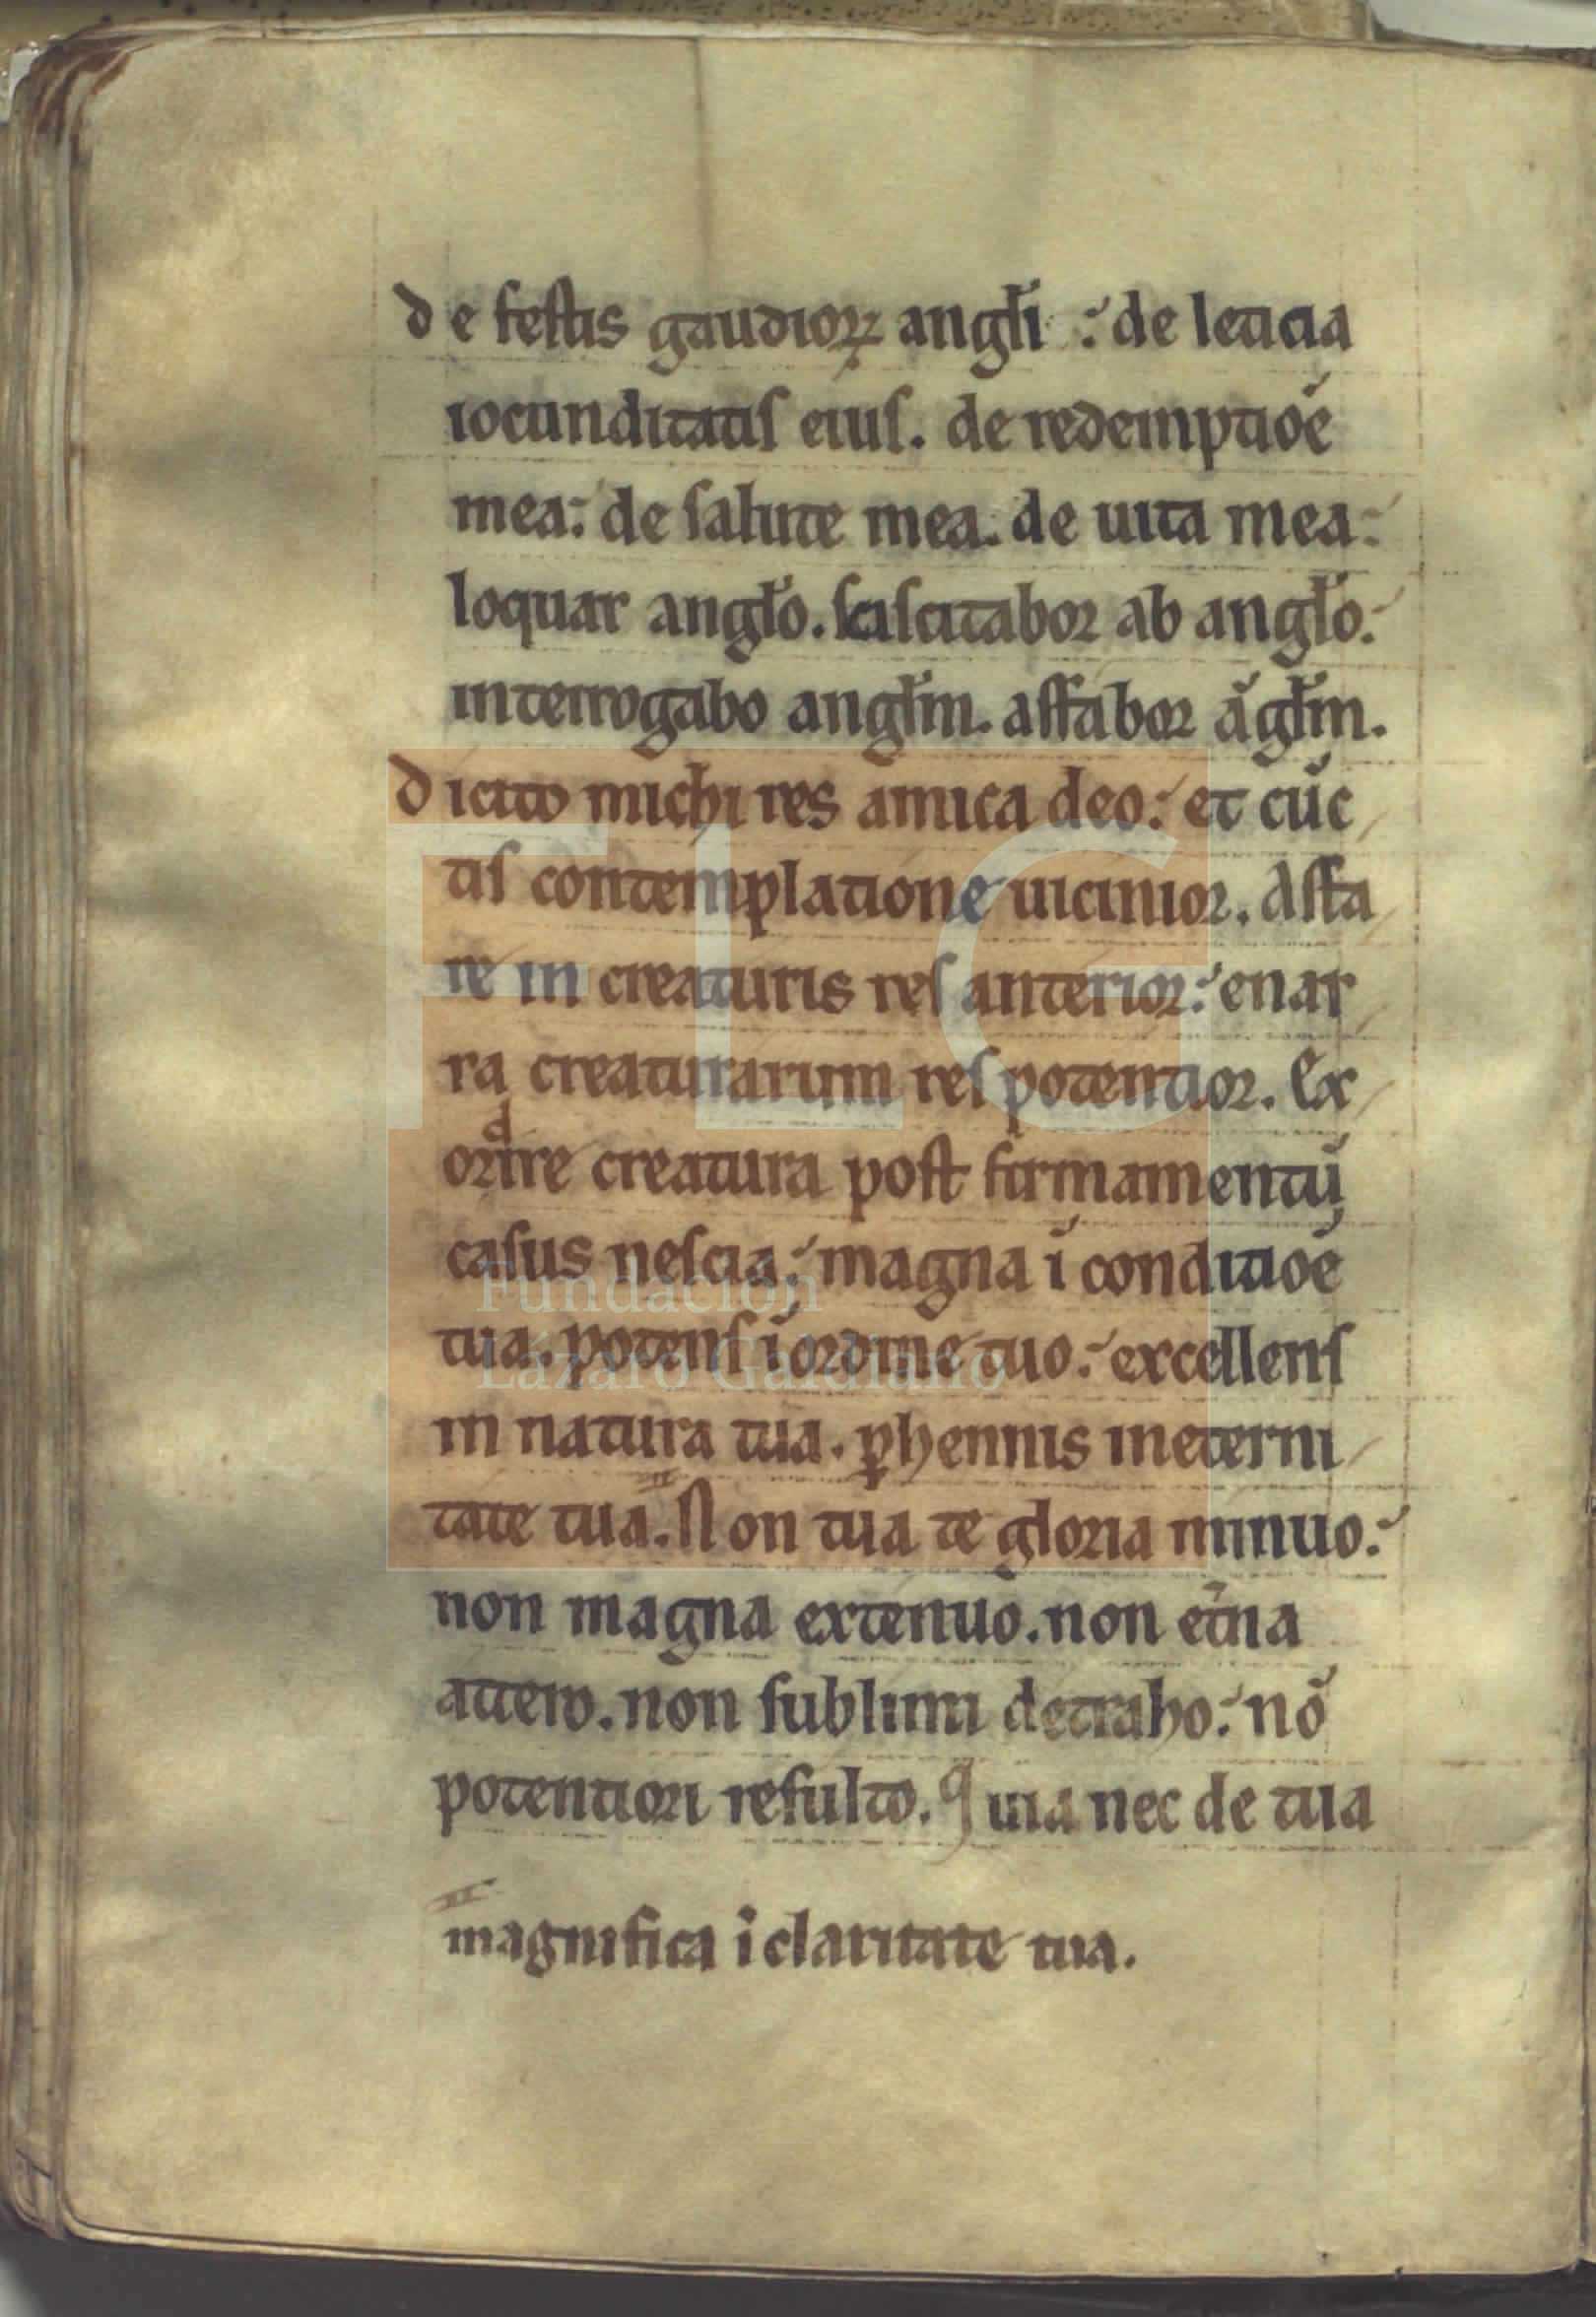 de festis gaudioꝝ angłi : de leticia
iocunditatis eius. de redemptiōe
mea: de salute mea. de uita mea:
loquar angło. sciscitabor ab angło:
interrogabo angłm. affabor āgłm.
dicito michi res amica deo: et cūc
tis contemplatione uicinior. Affa
re in creaturis res anterior: enar
ra creaturarum res potentior. Ex
ordire creatura post firmamentū
casus nescia: magna ī conditiōe
tua. potens ī ordine tuo: excellens
in natura tua. ꝑhennis in eterni
tate tua. Non tua te gloria minuo:
non magna extenuo. non et̄na
attero. non sublimi detraho: nō
potentiori resulto. Quia nec de tua
magnifica ī claritate tua.
FLG
Fundación
Lázaro Galdiano